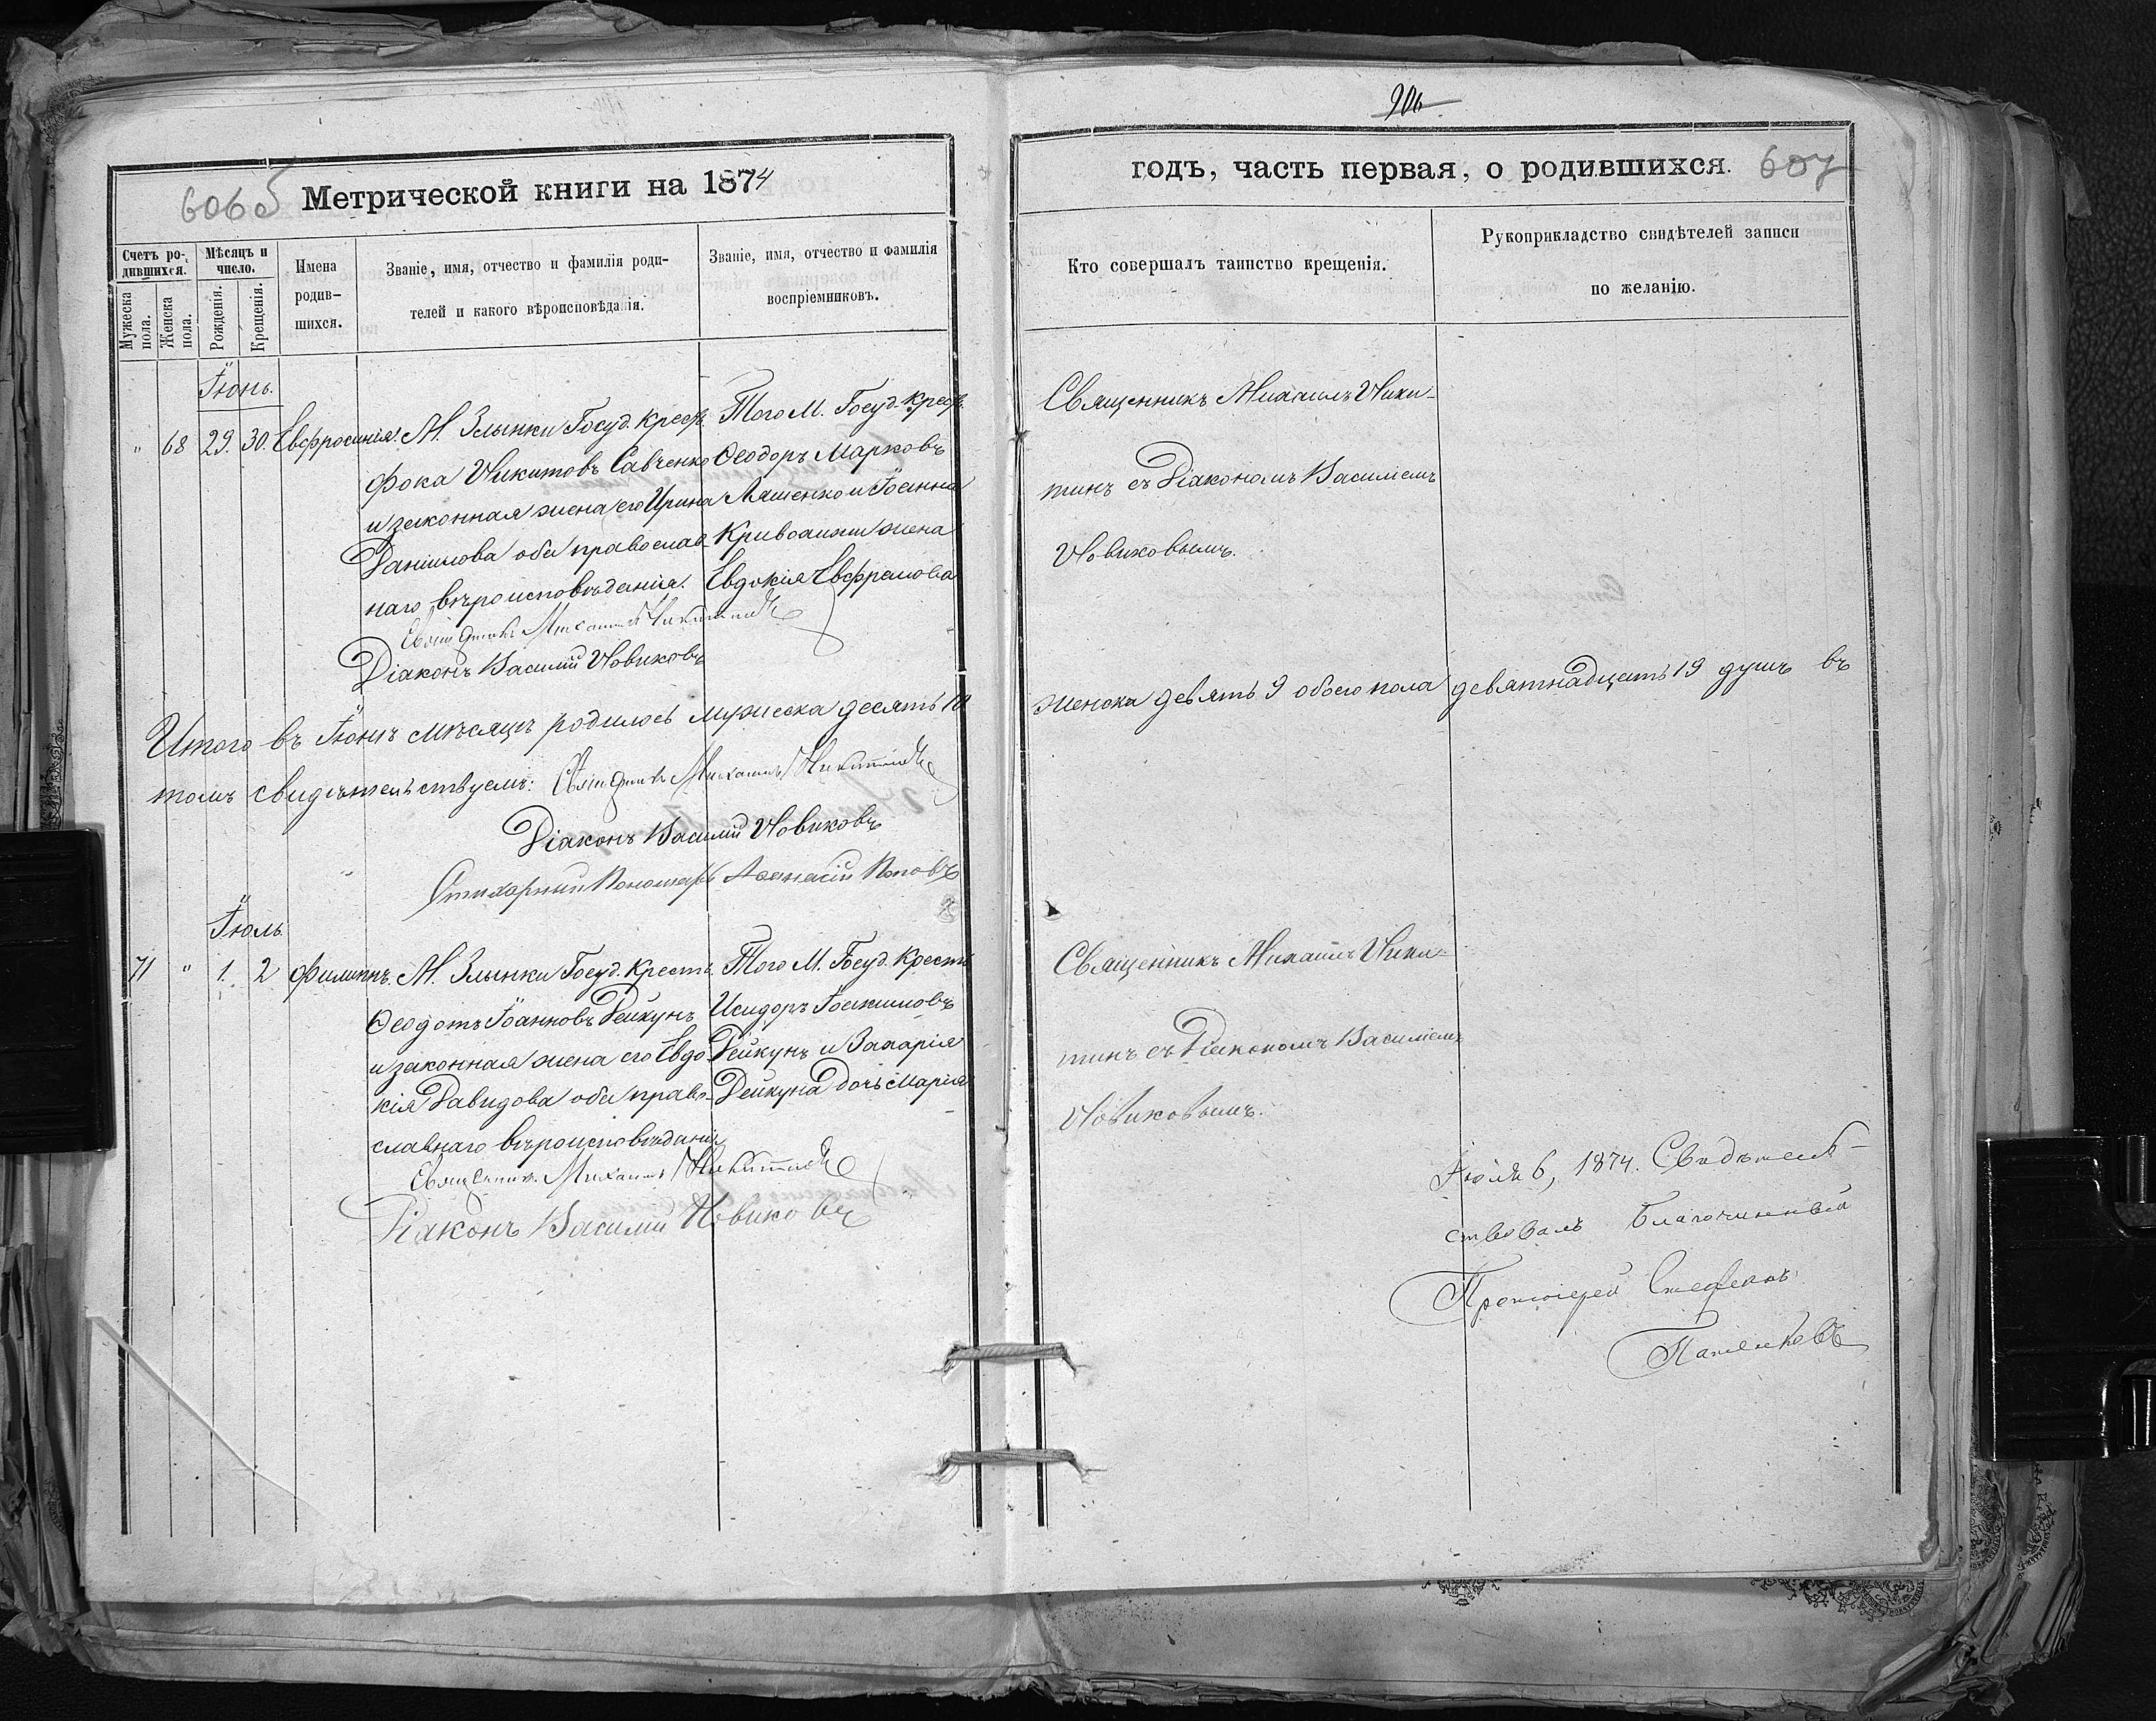 906
606 б Метрической книги на 1874
годъ, часть первая, о родившихся. 607
Счетъ ро-
дившихся.
Мужеска пола.
Женска пола.
Мѣсяцъ и
число.
Рожденія.
Крещенія.
Имена
родив-
шихся.
Званіе, имя, отчество и фамилія роди-
телей и какого вѣроисповѣданія.
Званіе, имя, отчество и фамилія
воспріемниковъ.
Кто совершалъ таинство крещенія.
Рукоприкладство свидѣтелей записи
по желанію.
Іюнь.
" 68 29. 30. Евфросинія.
М. Злынки Госуд. Крест.
Фока Никитовъ Савченко
и законная жена его Ирина
Даніилова оба православ-
наго вѣроисповѣданія.
Священникъ Михаилъ Никитинъ
Діаконъ Василій Новиковъ
Того М. Госуд. Крест.
Ѳеодоръ Марковъ
Ляшенко и Іоанна
жена
Евдокія Евфремова
Священникъ Михаилъ Ники-
тинъ съ Діакономъ Василіемъ
Новиковымъ.
Итого въ Іюнѣ мѣсяцѣ родилось мужеска десять 10
женска девять 9 обоего пола девятнадцать 19 душъ въ
томъ свидѣтельствуемъ: Священникъ Михаилъ Никитинъ
Діаконъ Василій Новиковъ
Стихарный Пономарь Аѳанасій Поповъ
Іюль.
71 " 1. 2 Филиппъ.
М. Злынки Госуд. Крестъ.
Ѳеодотъ Іоанновъ Дейкунъ
и законная жена его Евдо-
кія Давидова оба право-
славнаго вѣроисповѣданія
Священникъ Михаилъ Никитинъ
Діаконъ Василій Новиковъ
Того М. Госуд. Крестъ
Исидоръ Іоакимовъ
Дейкунъ и Захарія
Дейкуна дочь Марія
Священникъ Михаилъ Ники-
тинъ съ Діакономъ Василіемъ
Новиковымъ.
Іюля 6, 1874. Свидѣтель-
ствовалъ Благочинный
Протоіерей Стефанъ